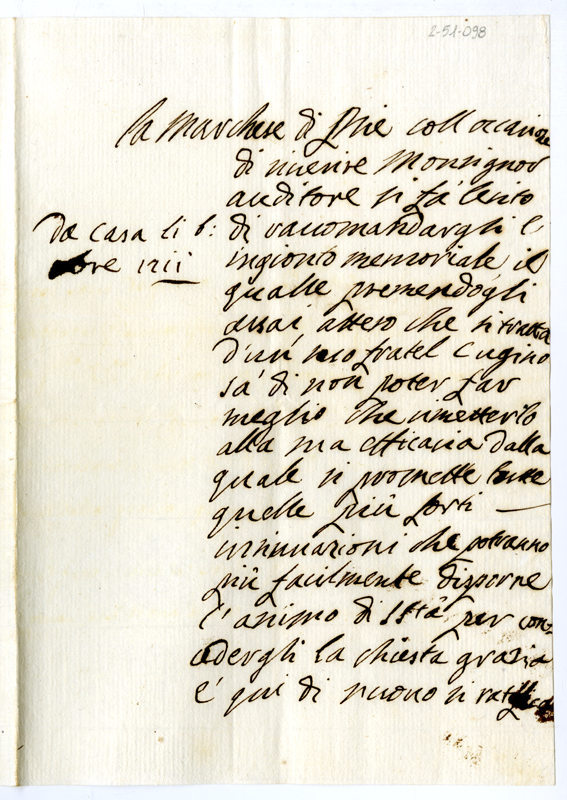 2-51-098
la Marchese di Prie coll occasione
di riverire Monsignor
auditore si fà lecito
di raccomandargli l'
ingionto memoriale il
qualle premendogli
assai, atteso che si tratta
d'un suo fratel Cugino
sà di non poter far
meglio che rimetterlo
alla sua efficacia dalla
quale si promette tutte
quelle più forti
insinuazioni che potranno
più facilmente disporne
l'animo di SStà per con=
cedergli la chiesta grazia
e qui di nuovo si
Da casa li 6:
1711